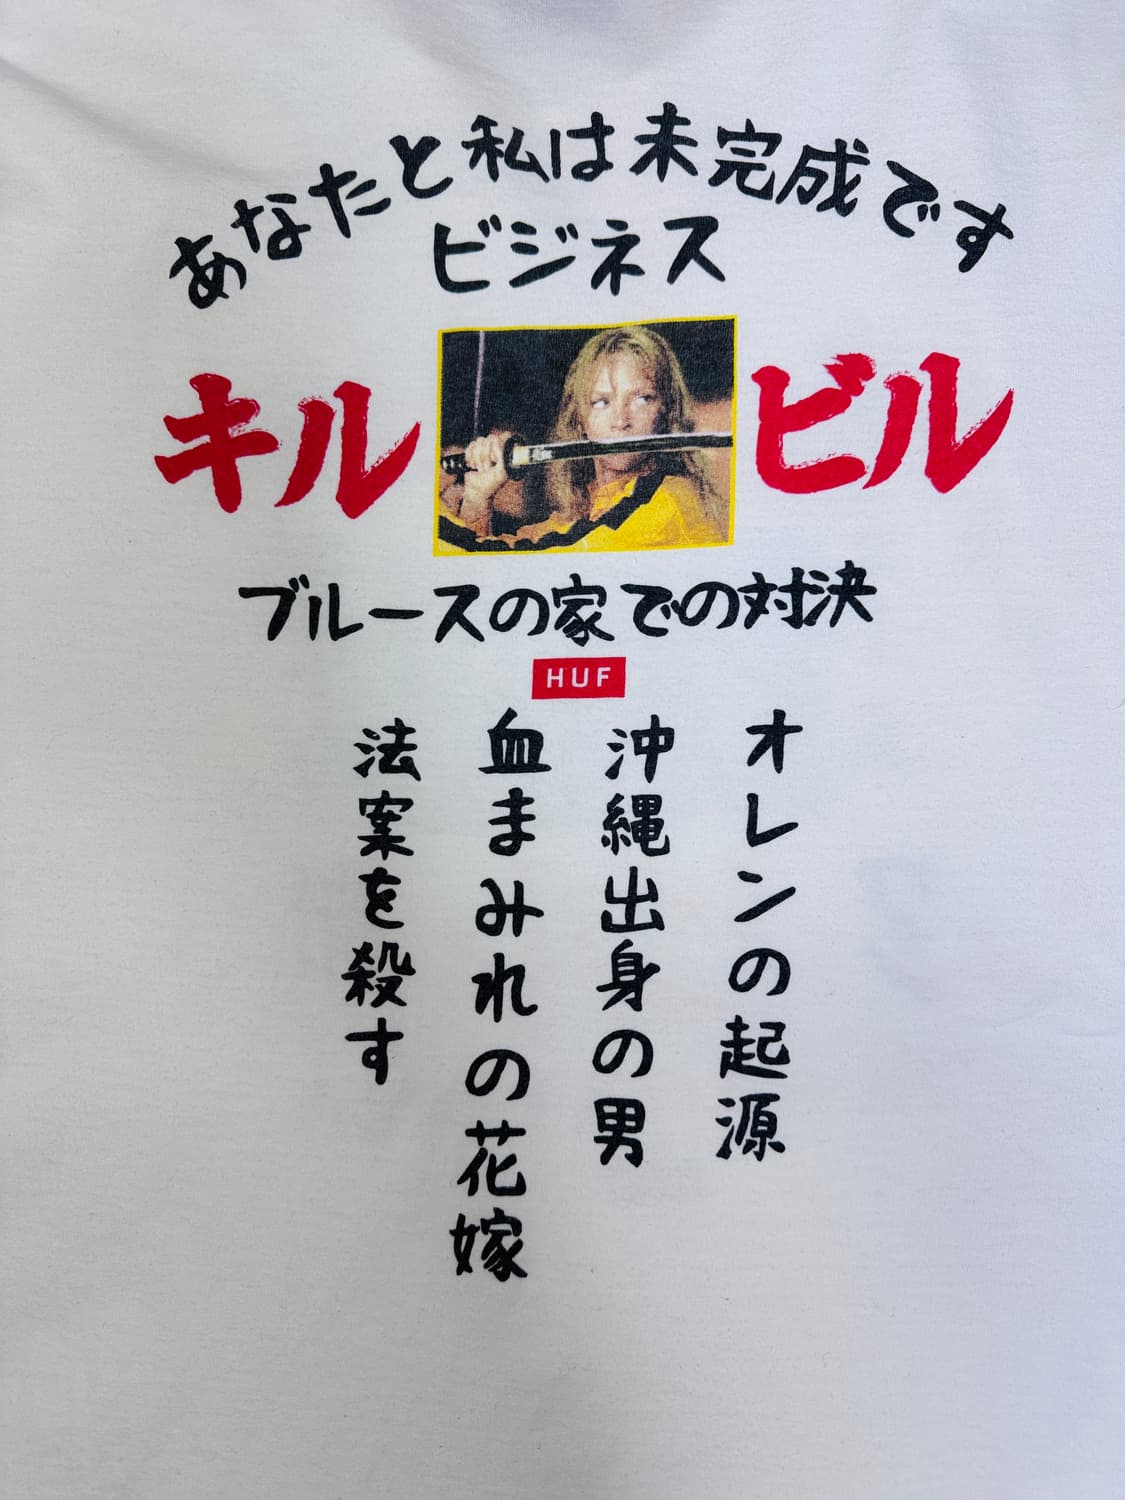 あなたと私は未完成です
ビジネス
キル ビル
ブルースの家での対決
HUF
オレンの起源
沖縄出身の男
血まみれの花嫁
法案を殺す